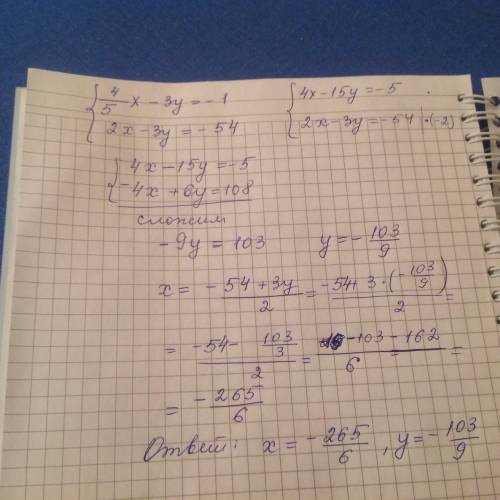 { 4/5 x - 3y = -1
2x - 3y = -54
{ 4x - 15y = -5
2x - 3y = -54 | ·(-2)
{ 4x - 15y = -5
-4x + 6y = 108
сложим
-9y = 103    y = - 103/9
x = (-54 + 3y)/2 = (-54 + 3·(-103/9))/2 =
= (-54 - 103/3)/2 = (-103 - 162)/6 =
= -265/6
Ответ: x = -265/6, y = -103/9